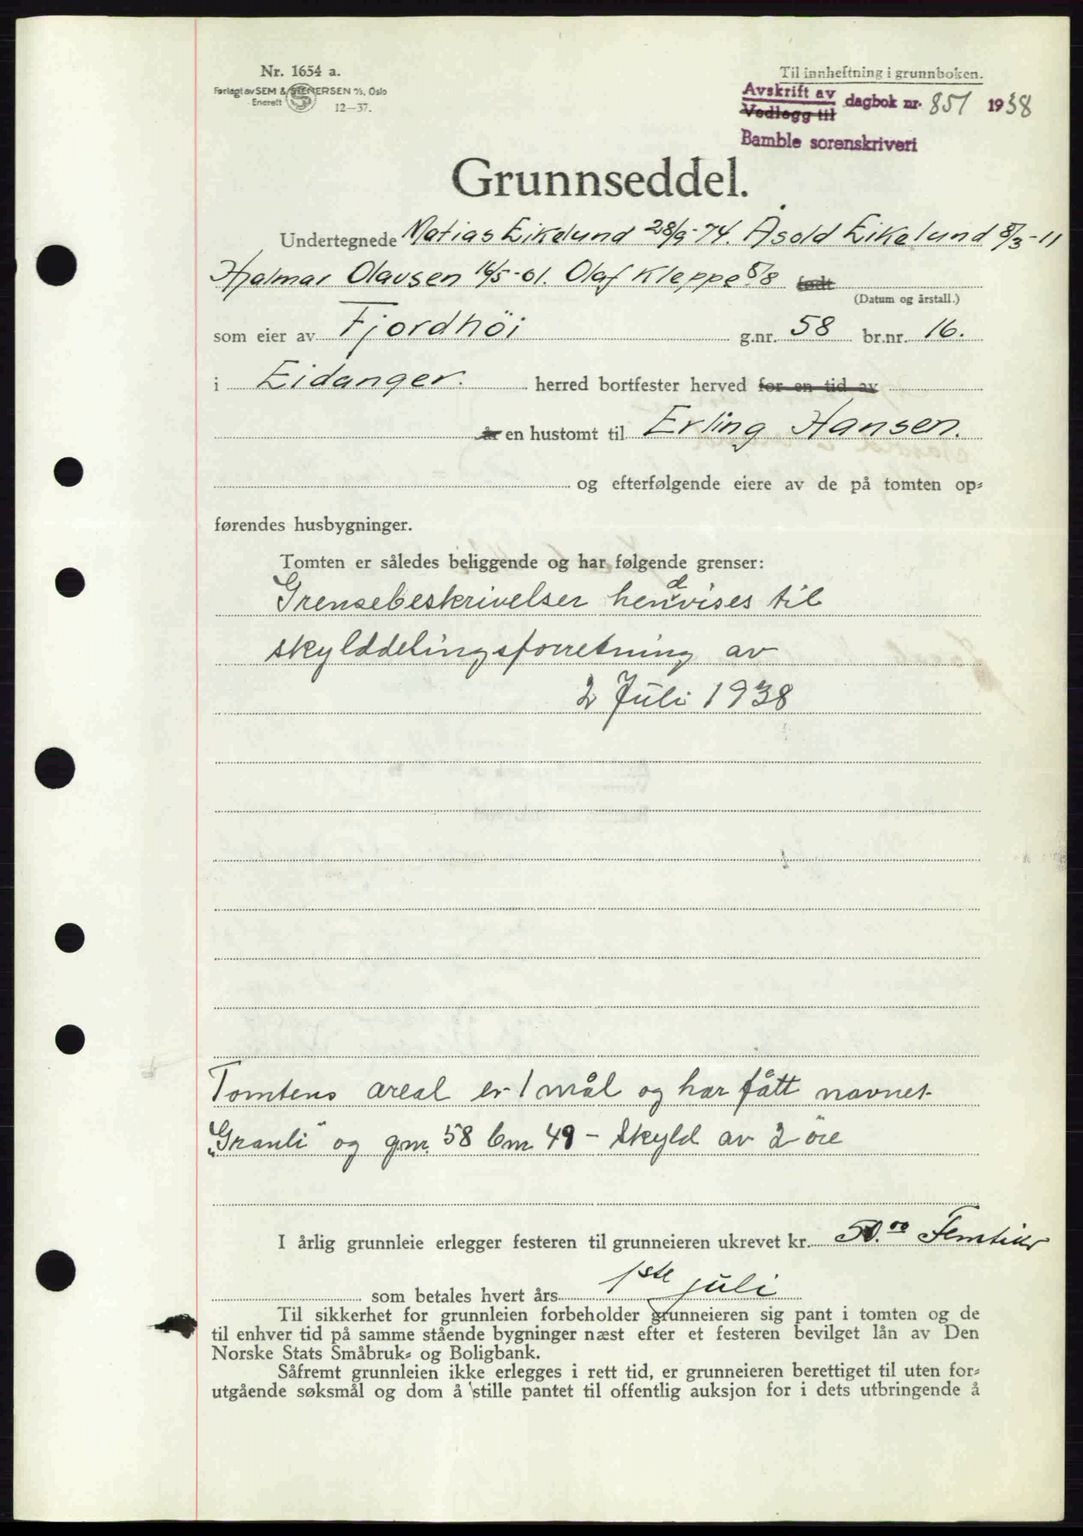 Nr. 1654 a.
Forlagt av SEM & STENERSEN A/S, Oslo
Enerett 12—37.
Til innheftning i grunnboken.
Avskrift av
Vedlegg til dagbok nr. 851 1938
Bamble sorenskriveri
Grunnseddel.
Undertegnede Matias Eikelund 28/9-74. Åsold Eikelund 8/3-11
Hjalmar Olausen 16/5-01. Olaf Kleppe 5/8 født
(Datum og årstall.)
som eier av Fjordhöi g.nr. 58 br.nr. 16.
i Eidanger. herred bortfester herved for en tid av
år en hustomt til Erling Hansen.
og efterfølgende eiere av de på tomten op-
førendes husbygninger.
Tomten er således beliggende og har følgende grenser:
Grensebeskrivelser henvises til
skylddelingsforretning av
2 Juli 1938
Tomtens areal er 1 mål og har fått navnet
„Granli" og gnr. 58 bnr 49 - Skyld av 2 öre
I årlig grunnleie erlegger festeren til grunneieren ukrevet kr. 50.00 Femtikr
som betales hvert års 1ste juli
Til sikkerhet for grunnleien forbeholder grunneieren sig pant i tomten og de
til enhver tid på samme stående bygninger næst efter et festeren bevilget lån av Den
Norske Stats Småbruk- og Boligbank.
Såfremt grunnleien ikke erlegges i rett tid, er grunneieren berettiget til uten for-
utgående søksmål og dom å stille pantet til offentlig auksjon for i dets utbringende å